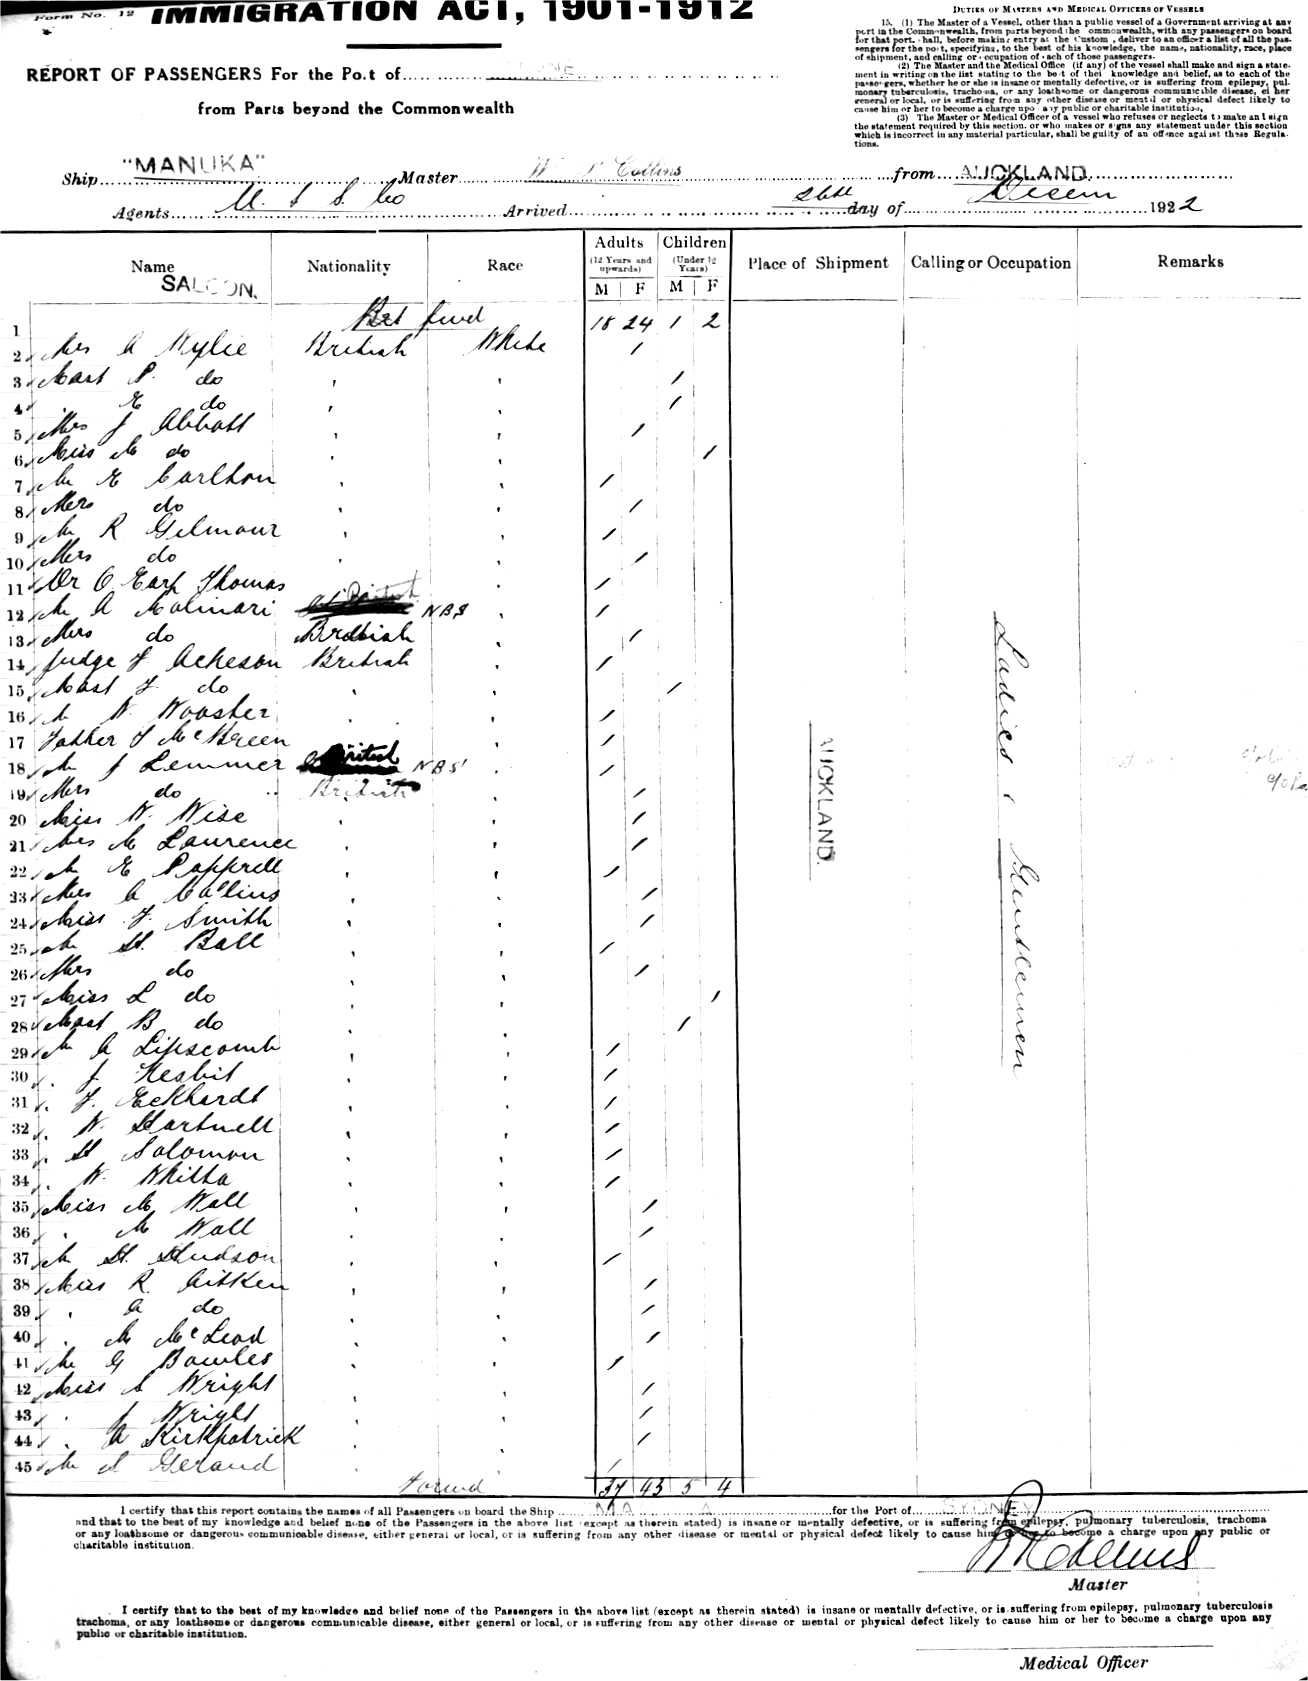 Form No. 12
IMMIGRATION ACT, 1901-1912
REPORT OF PASSENGERS For the Po.t of
from Parts beyond the Commonwealth
DUTIES OF MASTERS AND MEDICAL OFFICERS OF VESSELS
15. (1) The Master of a Vessel, other than a public vessel of a Government arriving at any
port in the Commonwealth, from parts beyond the ommonwealth, with any passengers on board
for that port. hall, before making entry at the Custom , deliver to an officer a list of all the pas-
sengers for the port, specifying, to the best of his knowledge, the name, nationality, race, place
of shipment, and calling or occupation of each of those passengers.
(2) The Master and the Medical Office (if any) of the vessel shall make and sign a state-
ment in writing on the list stating to the be t of thei knowledge and belief, as to each of the
passengers, whether he or she is insane or mentally defective, or is suffering from epilepsy, pul-
monary tuberculosis, trachoma, or any loathsome or dangerous communicable disease, ei her
general or local, or is suffering from any other disease or mental or physical defect likely to
cause him or her to become a charge upo a y public or charitable institution,
(3) The Master or Medical Officer of a vessel who refuses or neglects to make and sign
the statement required by this section, or who makes or signs any statement under this section
which is incorrect in any material particular, shall be guilty of an offence against these Regula-
tions.
Ship "MANUKA" Master W Collins from AUCKLAND
Agents U. S S. Co Arrived day of Decem 1922
Name Nationality Race Adults Children Place of Shipment Calling or Occupation Remarks
(12 Years and upwards) (Under 12 Years)
SALOON.
M F M F
1 Brt fwd 18 24 1 2
2 Mrs A Wylie British White 1
3 Mast P. do 1
4 E do 1
5 Mrs J Abbott 1
6 Miss M do 1
7 Mr E Carlton 1
8 Mrs do 1
9 Mr R Gilmour 1
10 Mrs do 1
11 Dr O Earp Thomas 1
12 Mr A Molinari British NBS 1
13 Mrs do British 1
14 Judge F Acheson British 1
15 Mast F do 1
16 Mr W Wooster 1
17 Father F McBreen 1
18 Mr J Lemmer British NBS 1
19 Mrs do British 1
20 Miss W. Wise 1
21 Mrs M Laurence 1
22 Mr E Papprell 1
23 Mrs A Collins 1
24 Miss F. Smith 1
25 Mr H. Ball 1
26 Mrs do 1
27 Miss L do 1
28 Mast B do 1
29 Mr A Lipscomb 1
30 J Nesbit 1
31 F. Eckhardt 1
32 W. Hartnell 1
33 H Solomon 1
34 W. Whitta 1
35 Miss M. Wall 1
36 M Wall 1
37 Mr H. Hudson 1
38 Miss R. Aitken 1
39 A do 1
40 M McLeod 1
41 Mr G Bowles 1
42 Miss A Wright 1
43 J Wright 1
44 A Kirkpatrick 1
45 Mr A Gerand 1
AUCKLAND.
Ladies & Gentlemen
Forwd 37 43 5 4
I certify that this report contains the names of all Passengers on board the Ship for the Port of SYDNEY
and that to the best of my knowledge and belief none of the Passengers in the above list (except as therein stated) is insane or mentally defective, or is suffering from epilepsy, pulmonary tuberculosis, trachoma
or any loathsome or dangerous communicable disease, either general or local, or is suffering from any other disease or mental or physical defect likely to cause him or her to become a charge upon any public or
charitable institution.
Master
I certify that to the best of my knowledge and belief none of the Passengers in the above list (except as therein stated) is insane or mentally defective, or is suffering from epilepsy, pulmonary tuberculosis
trachoma, or any loathsome or dangerous communicable disease, either general or local, or is suffering from any other disease or mental or physical defect likely to cause him or her to become a charge upon any
public or charitable institution.
Medical Officer